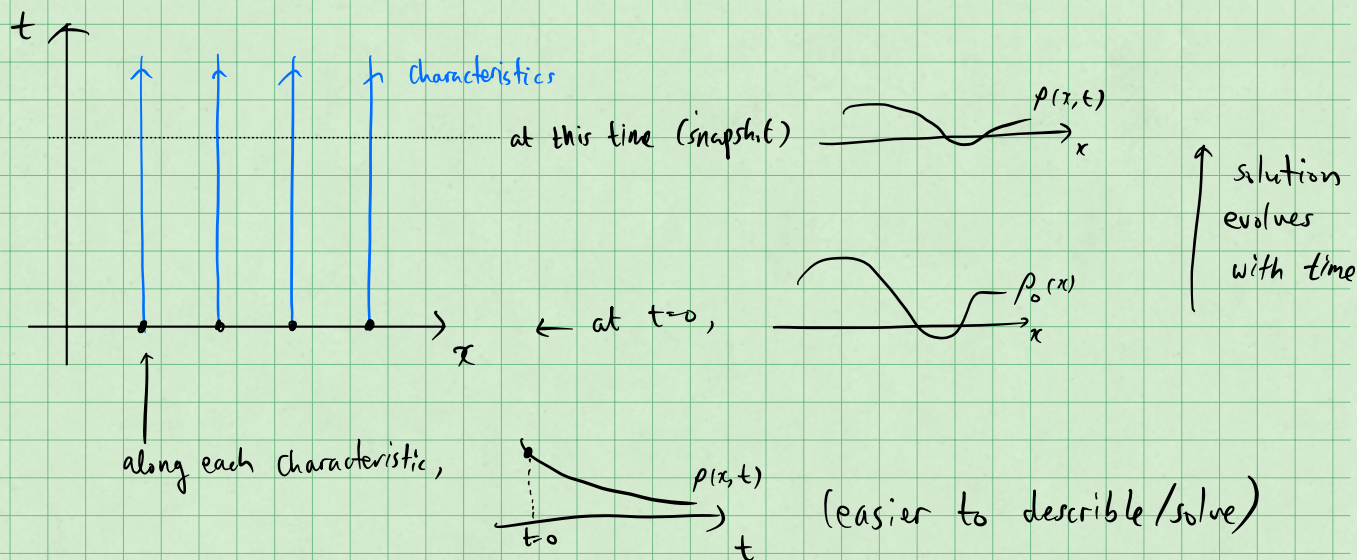 t
characteristics
at this time (snapshot)
ρ(x,t)
x
solution
evolves
with time
ρ₀(x)
← at t=0,
x
x
along each characteristic,
ρ(x,t)
(easier to describle/solve)
t=0
t